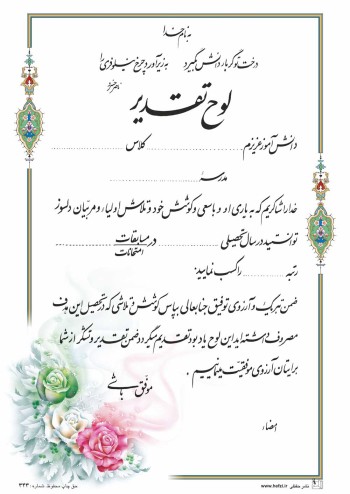 به نام خدا
درخت تو گر بار دانش بگیرد به زیر آوری چرخ نیلوفری را
ناصرخسرو
لوح تقدیر
دانش آموز عزیزم ........ کلاس ........
مدرسه ........
خدا را شاکریم که به یاری او و با سعی و کوشش خود و تلاش اولیاء و مربیان دلسوز
توانستید در سال تحصیلی ........ در مسابقات
امتحانات
رتبه ........ را کسب نمایید.
ضمن تبریک و آرزوی توفیق جنابعالی بپاس کوشش و تلاشی که در تحصیل این هدف
مصروف داشته اید این لوح یادبود تقدیم میگردد و ضمن تقدیر و تشکر از شما
برایتان آرزوی موفقیت مینماییم .
موفق باشی
امضاء
حق چاپ محفوظ. شماره: ۳۳۳
www.hafzi.ir